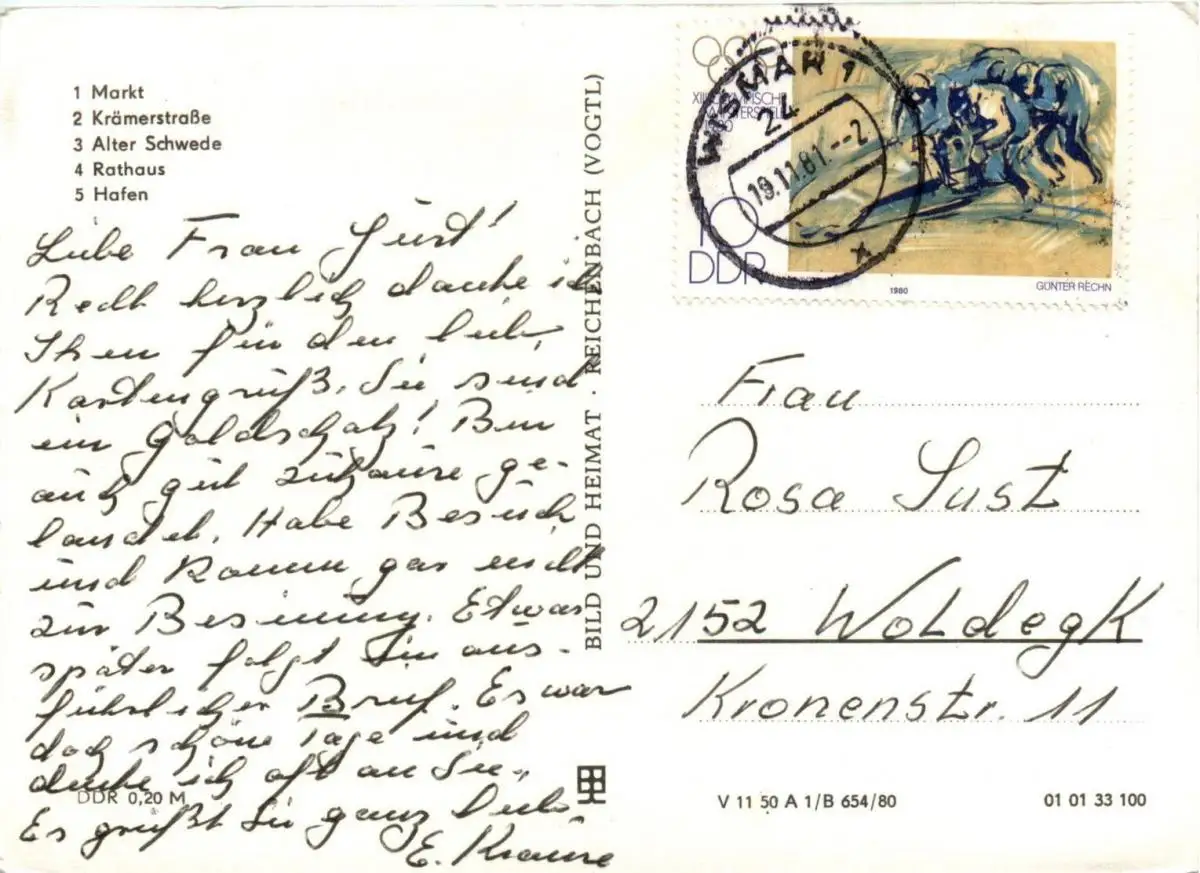 1 Markt
2 Krämerstraße
3 Alter Schwede
4 Rathaus
5 Hafen
Liebe Frau Sust!
Recht herzlich danke ich
Ihnen für den lieb.
Kartengruß. Sie sind
ein Goldschatz! Bin
auch gut zuhause ge-
landet. Habe Besuch
und komm gar nicht
zur Besinnung. Etwas
später folgt ein aus-
führlicher Brief. Es war
doch schöne Tage und
denke ich oft an Sie.
Es grüßt Sie ganz lieb
E. Krause
DDR 0,20 M
BILD UND HEIMAT · REICHENBACH (VOGTL)
WISMAR 1
24
19.11.81.--2
10
DDR
1980
GÜNTER RECHN
Frau
Rosa Sust
2152 WoLdegK
Kronenstr. 11
V 11 50 A 1/B 654/80
01 01 33 100